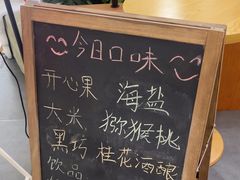 今日口味
开心果 海盐
大米 猕猴桃
黑巧 桂花酒酿
饮品